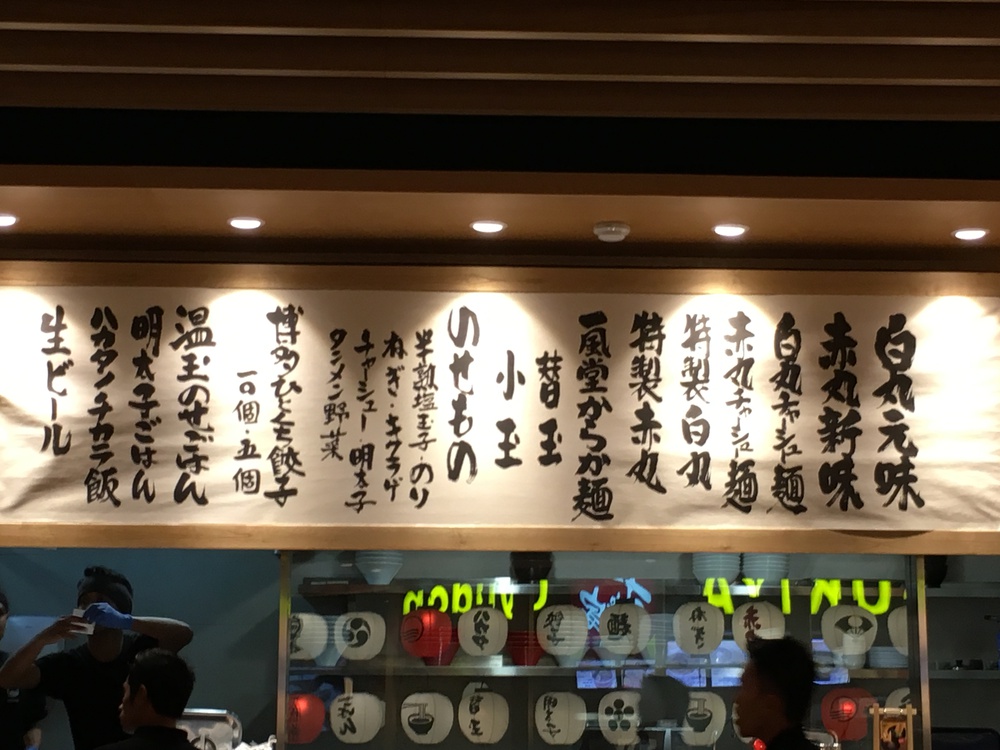 白丸元味
赤丸新味
白丸チャーシュー麺
赤丸チャーシュー麺
特製白丸
特製赤丸
一風堂からか麺
替玉
小玉
のせもの
半熟塩玉子 のり
ねぎ・キクラゲ
チャーシュー 明太子
タンメン野菜
博多ひとくち餃子
一〇個・五個
温玉のせごはん
明太子ごはん
ハカタノチカラ飯
生ビール